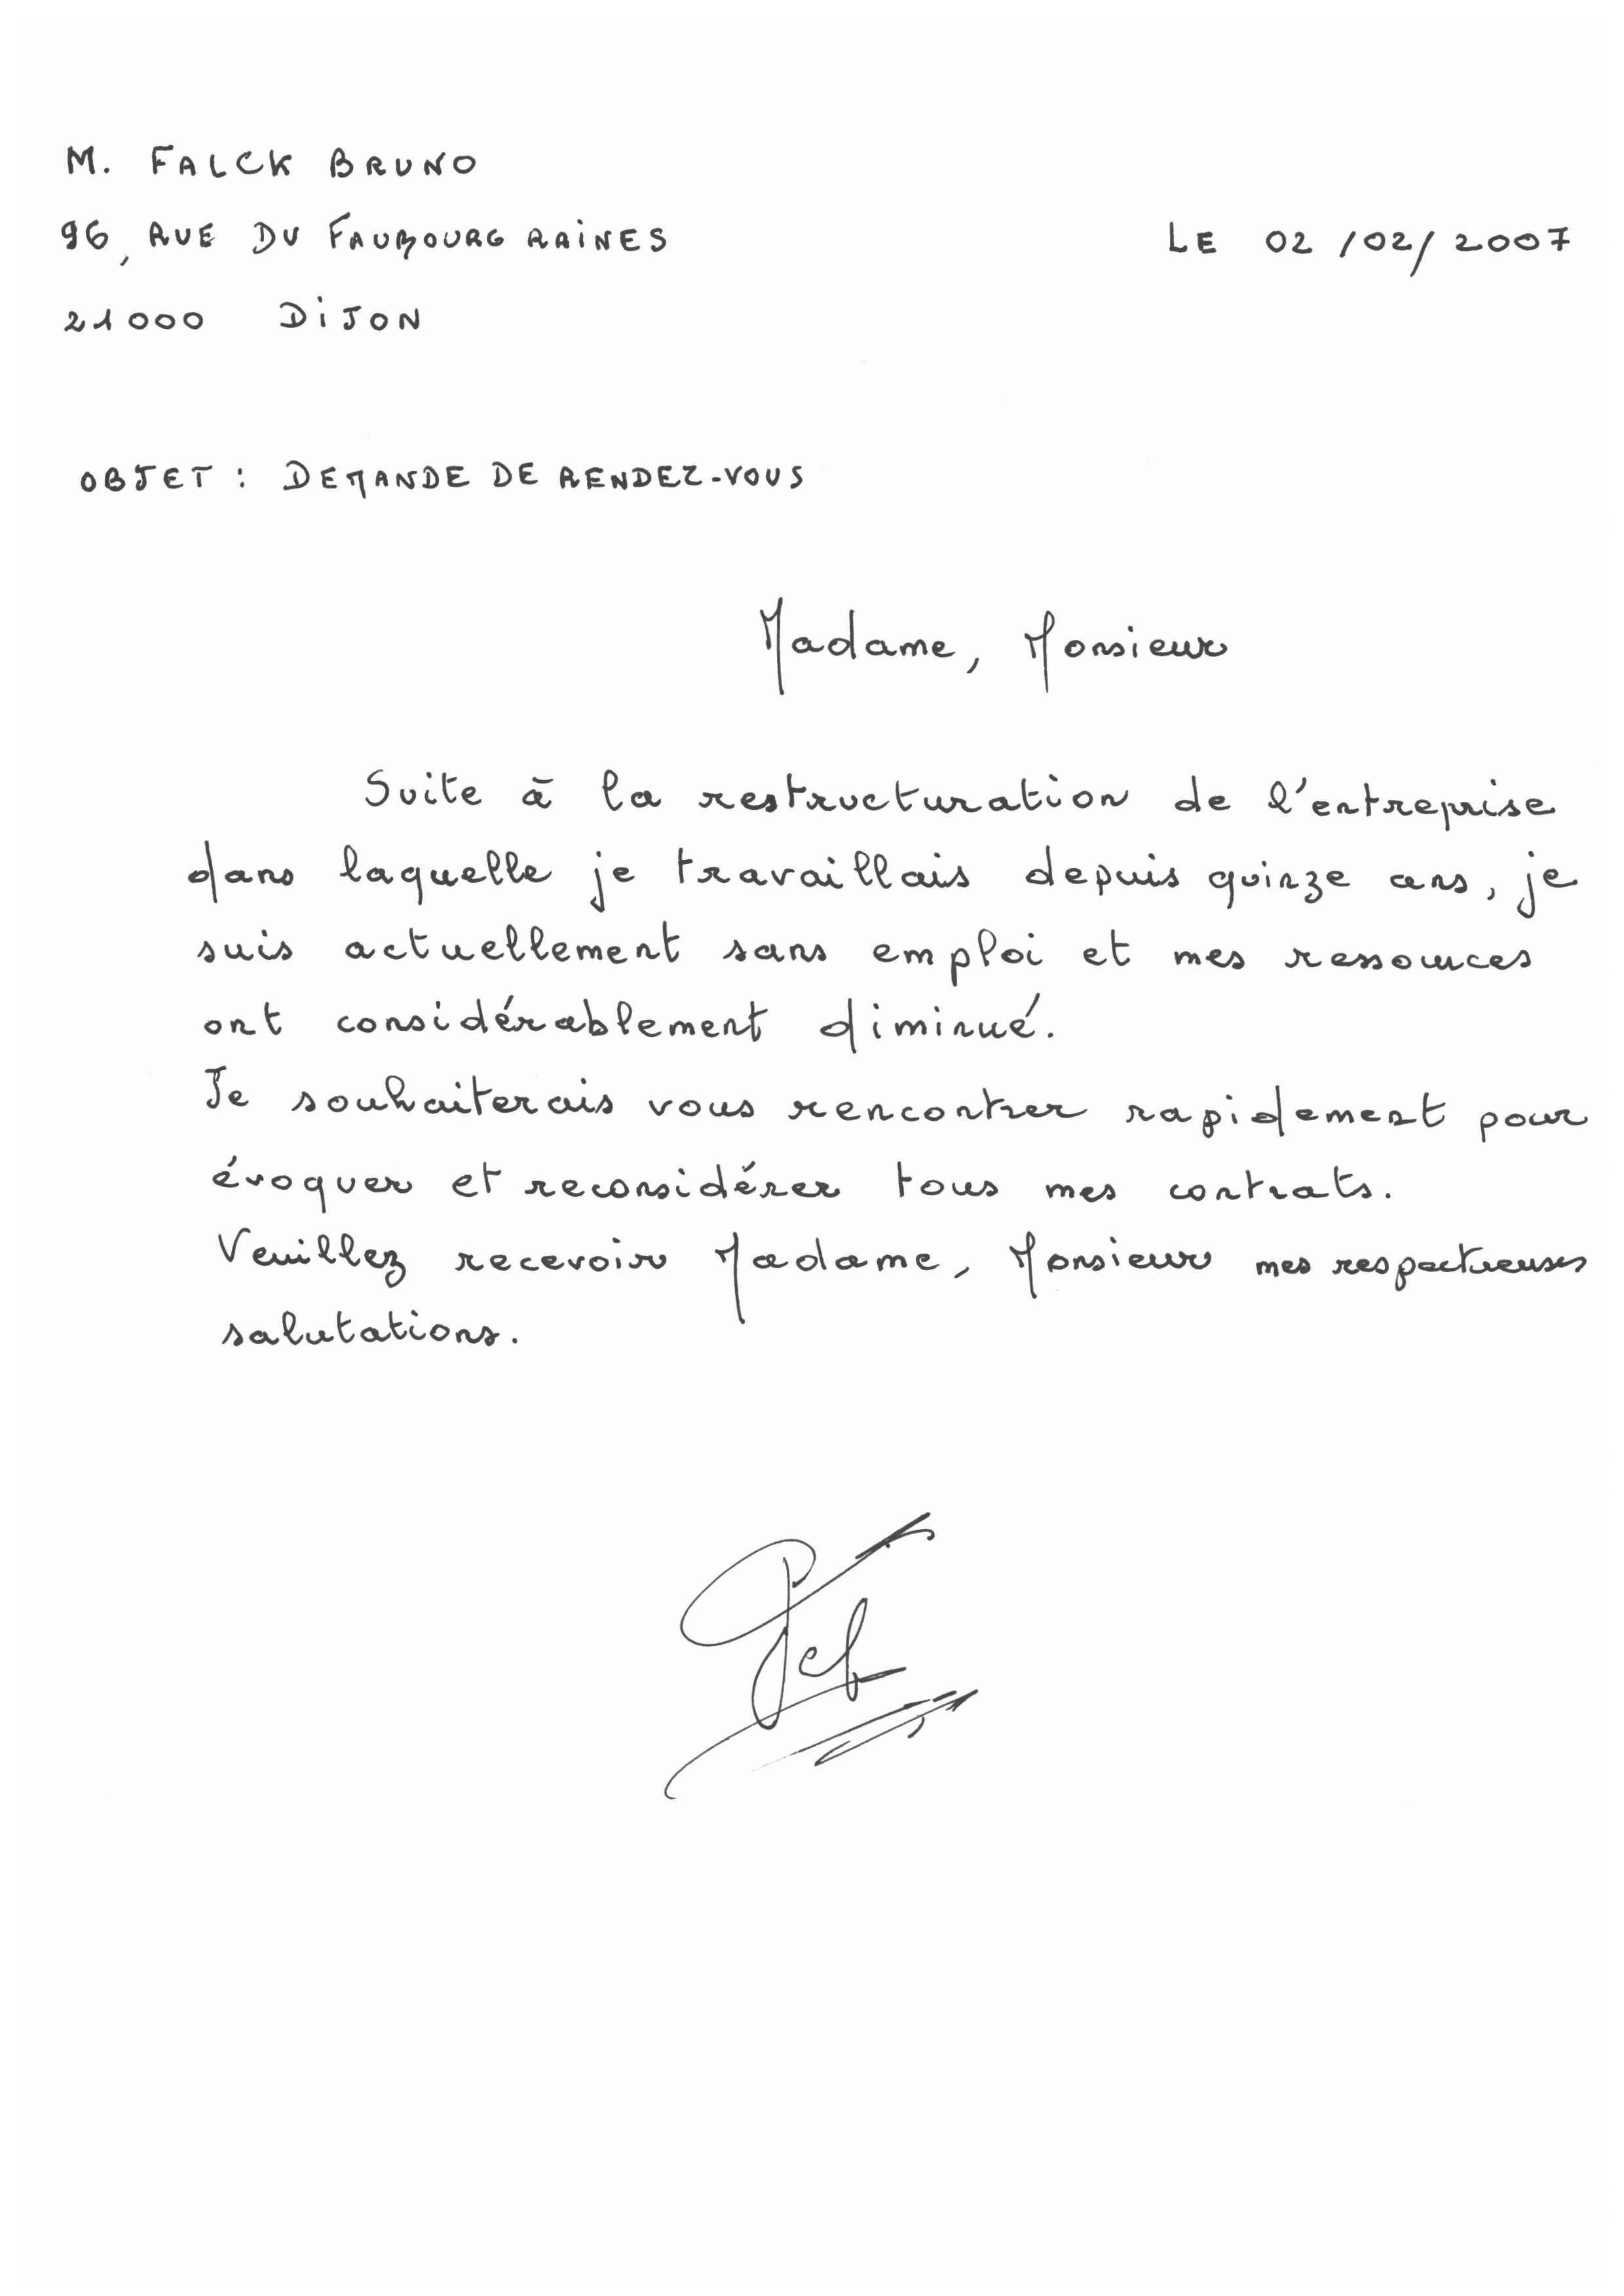 M. FALCK BRUNO
96, RUE DU FAUBOURG RAINES
LE 02/02/2007
21000 DIJON
OBJET : DEMANDE DE RENDEZ-VOUS
Madame, Monsieur
Suite à la restructuration de l'entreprise
dans laquelle je travaillais depuis quinze ans, je
suis actuellement sans emploi et mes ressources
ont considérablement diminué.
Je souhaiterais vous rencontrer rapidement pour
évoquer et reconsidérer tous mes contrats.
Veuillez recevoir Madame, Monsieur mes respectueuses
salutations.